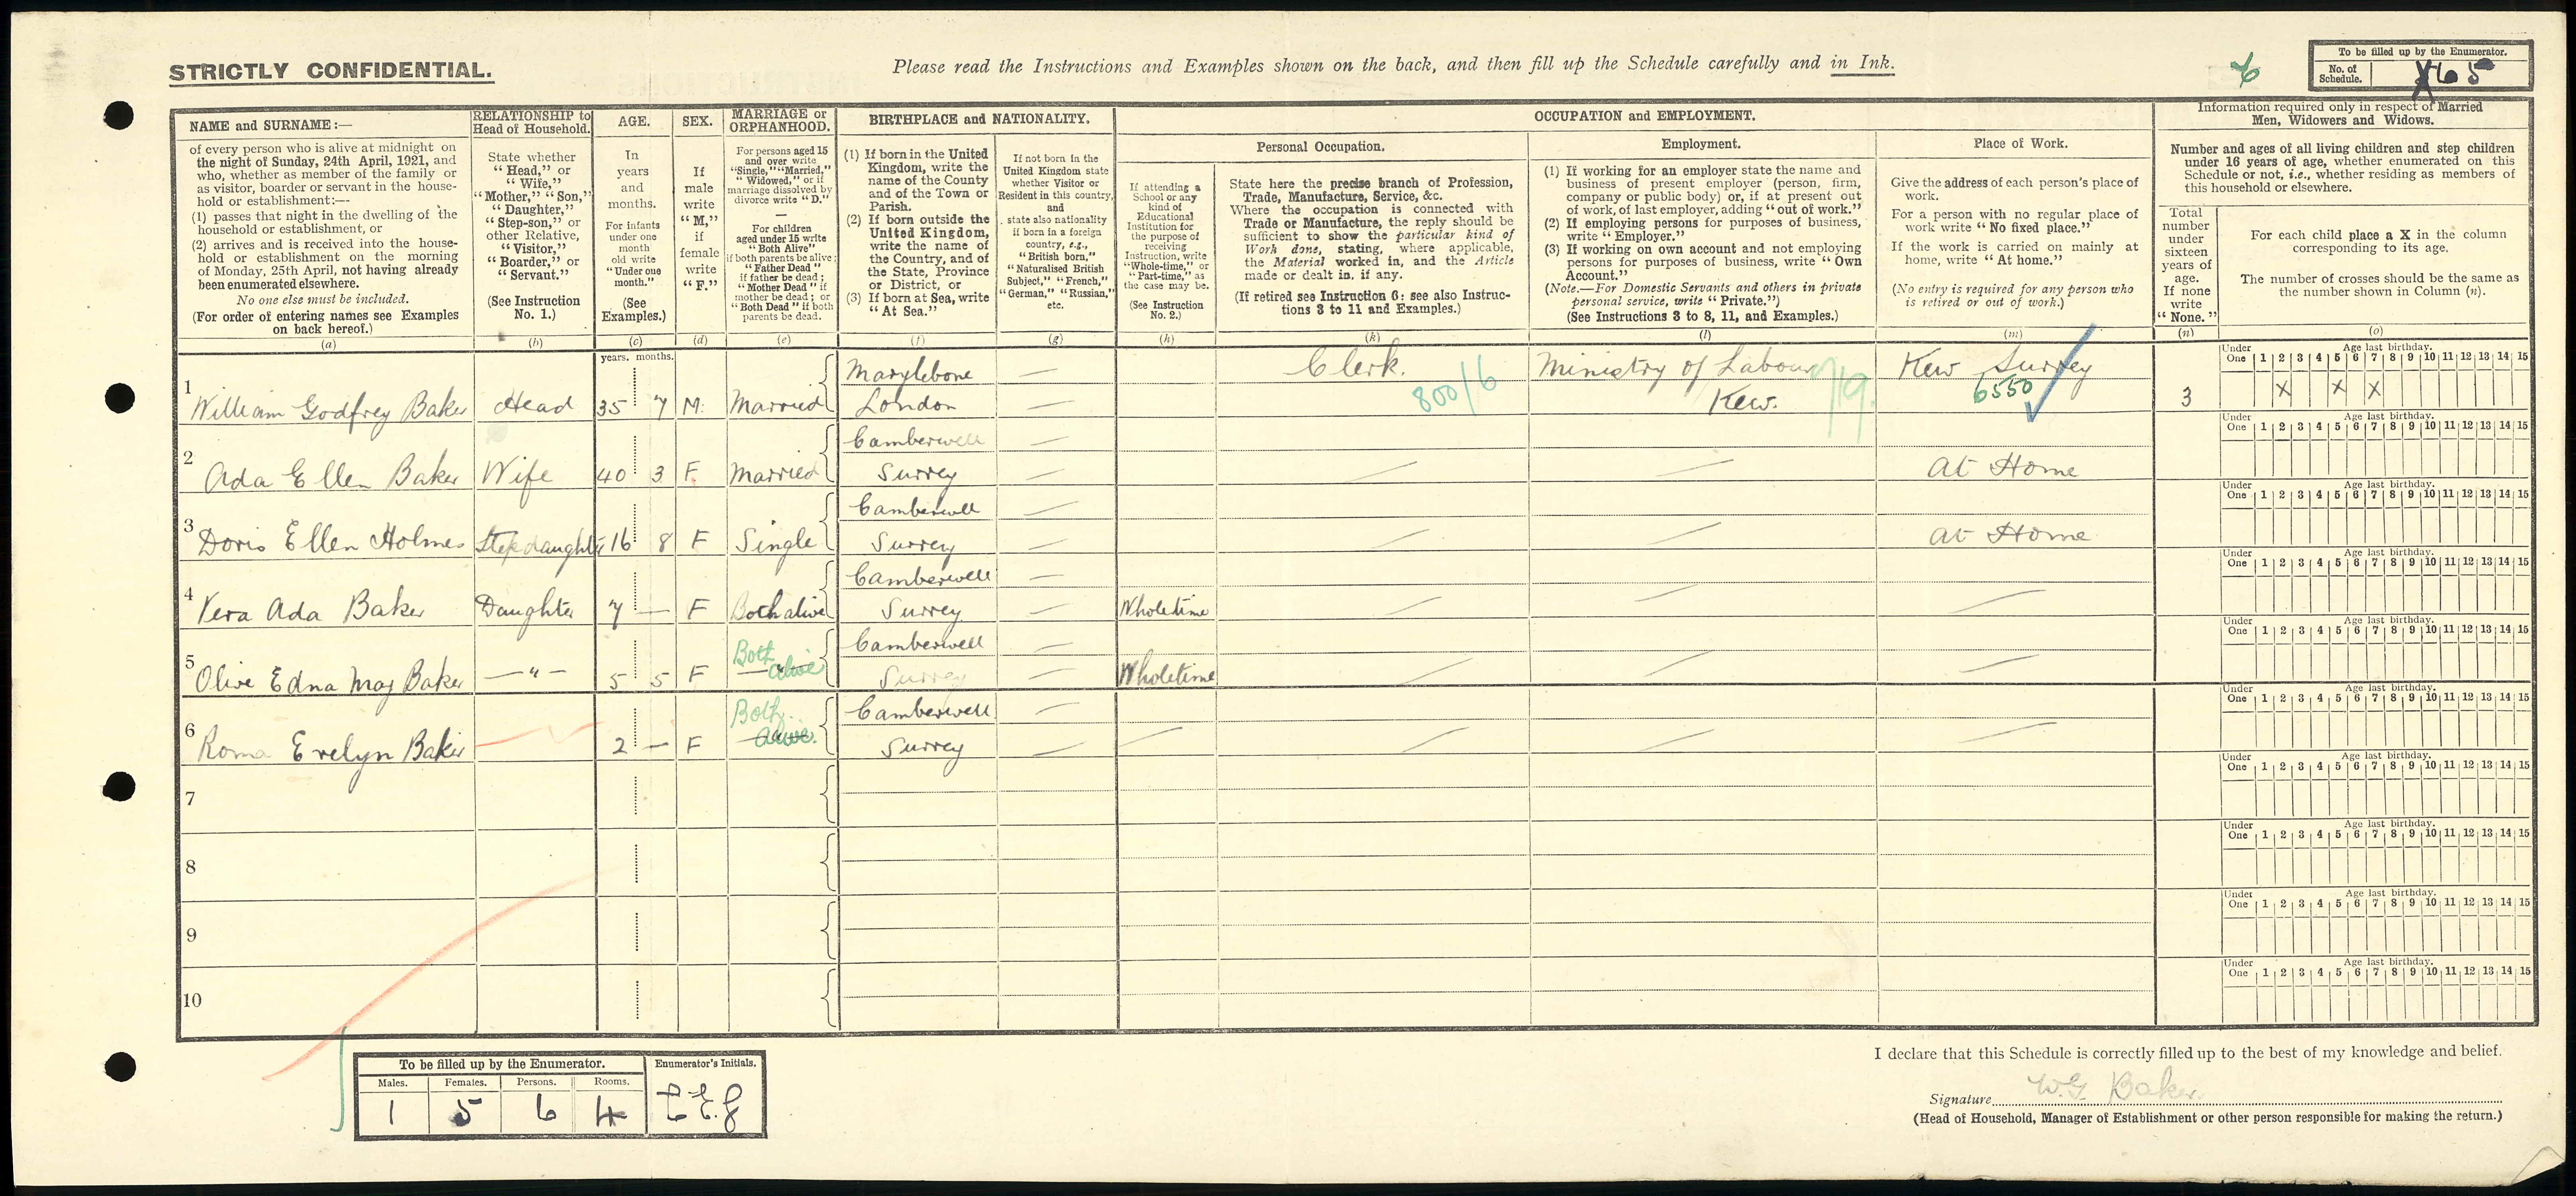 STRICTLY CONFIDENTIAL.
Please read the Instructions and Examples shown on the back, and then fill up the Schedule carefully and in Ink.
To be filled up by the Enumerator.
No. of Schedule. 65
NAME and SURNAME:—
of every person who is alive at midnight on
the night of Sunday, 24th April, 1921, and
who, whether as member of the family or
as visitor, boarder or servant in the house-
hold or establishment:—
(1) passes that night in the dwelling of the
household or establishment, or
(2) arrives and is received into the house-
hold or establishment on the morning
of Monday, 25th April, not having already
been enumerated elsewhere.
No one else must be included.
(For order of entering names see Examples
on back hereof.)
(a)
RELATIONSHIP to
Head of Household.
State whether
"Head," or
"Wife,"
"Mother," "Son,"
"Daughter,"
"Step-son," or
other Relative,
"Visitor,"
"Boarder," or
"Servant."
(See Instruction
No. 1.)
(b)
AGE.
In
years
and
months.
For infants
under one
month
old write
"Under one
month."
(See
Examples.)
(c)
SEX.
If
male
write
"M,"
if
female
write
"F."
(d)
MARRIAGE or
ORPHANHOOD.
For persons aged 15
and over write
"Single," "Married,"
"Widowed," or if
marriage dissolved by
divorce write "D."
—
For children
aged under 15 write
"Both Alive"
if both parents be alive;
"Father Dead"
if father be dead;
"Mother Dead" if
mother be dead; or
"Both Dead" if both
parents be dead.
(e)
BIRTHPLACE and NATIONALITY.
(1) If born in the United
Kingdom, write the
name of the County
and of the Town or
Parish.
(2) If born outside the
United Kingdom,
write the name of
the Country, and of
the State, Province
or District, or
(3) If born at Sea, write
"At Sea."
(f)
If not born in the
United Kingdom state
whether Visitor or
Resident in this country,
and
state also nationality
if born in a foreign
country, e.g.,
"British born,"
"Naturalised British
Subject," "French,"
"German," "Russian,"
etc.
(g)
OCCUPATION and EMPLOYMENT.
Personal Occupation.
If attending a
School or any
kind of
Educational
Institution for
the purpose of
receiving
Instruction, write
"Whole-time," or
"Part-time," as
the case may be.
(See Instruction
No. 2.)
(h)
State here the precise branch of Profession,
Trade, Manufacture, Service, &c.
Where the occupation is connected with
Trade or Manufacture, the reply should be
sufficient to show the particular kind of
Work done, stating, where applicable,
the Material worked in, and the Article
made or dealt in, if any.
(If retired see Instruction 6: see also Instruc-
tions 3 to 11 and Examples.)
(k)
Employment.
(1) If working for an employer state the name and
business of present employer (person, firm,
company or public body) or, if at present out
of work, of last employer, adding "out of work."
(2) If employing persons for purposes of business,
write "Employer."
(3) If working on own account and not employing
persons for purposes of business, write "Own
Account."
(Note.—For Domestic Servants and others in private
personal service, write "Private.")
(See Instructions 3 to 8, 11, and Examples.)
(l)
Place of Work.
Give the address of each person's place of
work.
For a person with no regular place of
work write "No fixed place."
If the work is carried on mainly at
home, write "At home."
(No entry is required for any person who
is retired or out of work.)
(m)
Information required only in respect of Married
Men, Widowers and Widows.
Number and ages of all living children and step children
under 16 years of age, whether enumerated on this
Schedule or not, i.e., whether residing as members of
this household or elsewhere.
Total
number
under
sixteen
years of
age.
If none
write
"None."
(n)
For each child place a X in the column
corresponding to its age.
The number of crosses should be the same as
the number shown in Column (n).
(o)
years. months.
Under One Age last birthday. 1 2 3 4 5 6 7 8 9 10 11 12 13 14 15
1 William Godfrey Baker Head 35 7 M. Married Marylebone London — — Clerk. 800/6 Ministry of Labour Kew. 719. Kew Surrey 6550 3 X X X
Under One Age last birthday. 1 2 3 4 5 6 7 8 9 10 11 12 13 14 15
2 Ada Ellen Baker Wife 40 3 F. Married Camberwell Surrey — — At Home
Under One Age last birthday. 1 2 3 4 5 6 7 8 9 10 11 12 13 14 15
3 Doris Ellen Holmes Stepdaughter 16 8 F Single Camberwell Surrey — — At Home
Under One Age last birthday. 1 2 3 4 5 6 7 8 9 10 11 12 13 14 15
4 Vera Ada Baker Daughter 7 — F Both alive Camberwell Surrey — — Wholetime
Under One Age last birthday. 1 2 3 4 5 6 7 8 9 10 11 12 13 14 15
5 Olive Edna May Baker —"— 5 5 F Both alive Camberwell Surrey — — Wholetime
Under One Age last birthday. 1 2 3 4 5 6 7 8 9 10 11 12 13 14 15
6 Roma Evelyn Baker 2 — F Both alive. Camberwell Surrey — —
Under One Age last birthday. 1 2 3 4 5 6 7 8 9 10 11 12 13 14 15
7
Under One Age last birthday. 1 2 3 4 5 6 7 8 9 10 11 12 13 14 15
8
Under One Age last birthday. 1 2 3 4 5 6 7 8 9 10 11 12 13 14 15
9
Under One Age last birthday. 1 2 3 4 5 6 7 8 9 10 11 12 13 14 15
10
To be filled up by the Enumerator.
Males. Females. Persons. Rooms.
1 5 6 4
Enumerator's Initials.
I declare that this Schedule is correctly filled up to the best of my knowledge and belief.
Signature W.G. Baker.
(Head of Household, Manager of Establishment or other person responsible for making the return.)